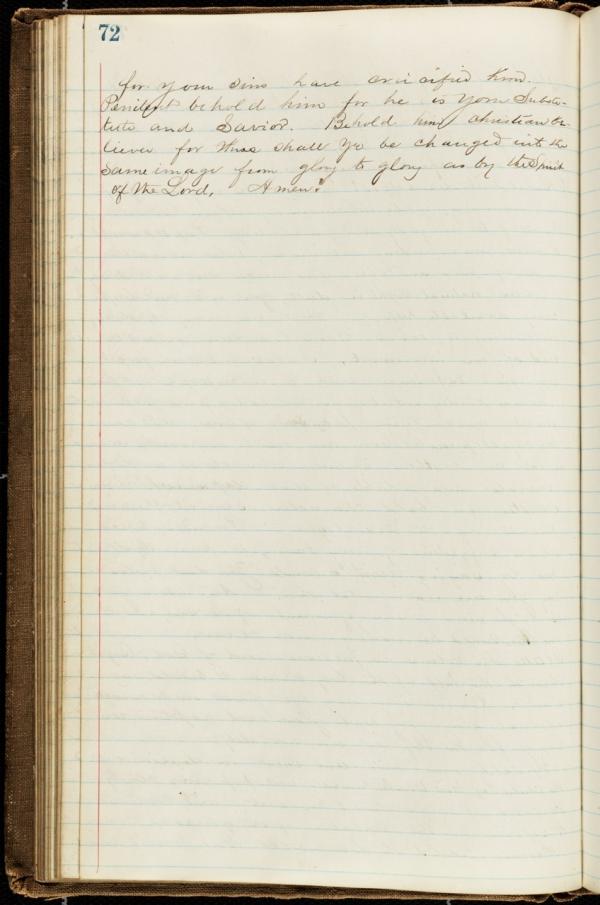 72
for your sins have crucified him.
Penitent behold him for he is your Substi-
tute and Savior. Behold him christian be-
liever for thus shall ye be changed into the
same image from glory to glory as by the Spirit
of the Lord. Amen.